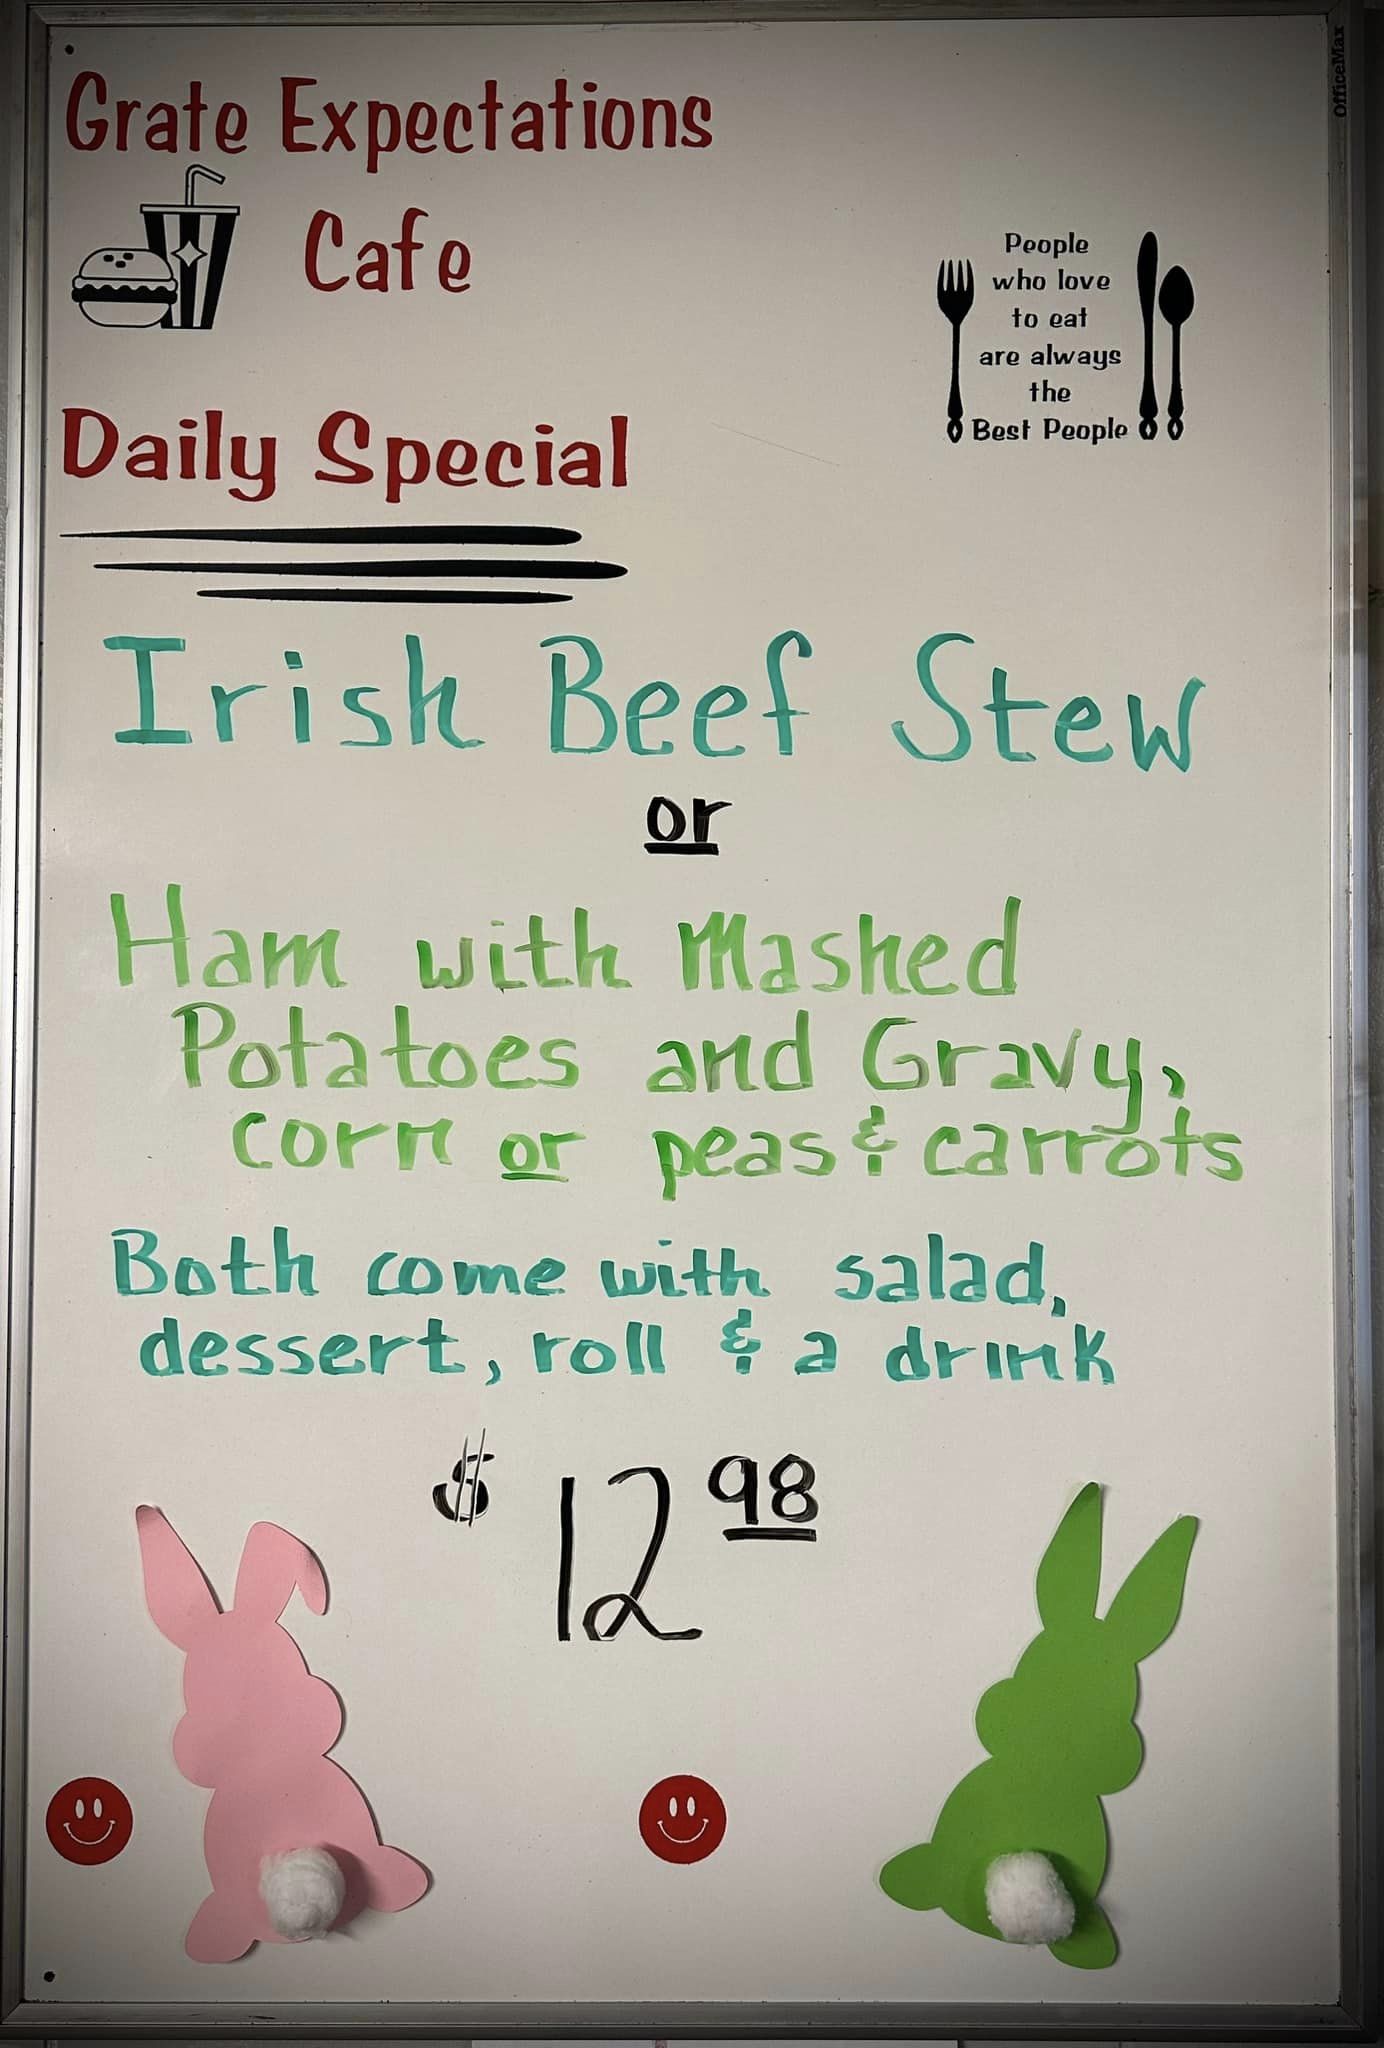 OfficeMax
Grate Expectations
Cafe
People
who love
to eat
are always
the
Best People
Daily Special
Irish Beef Stew
or
Ham with Mashed
Potatoes and Gravy,
corn or peas & carrots
Both come with salad,
dessert, roll & a drink
$12 98